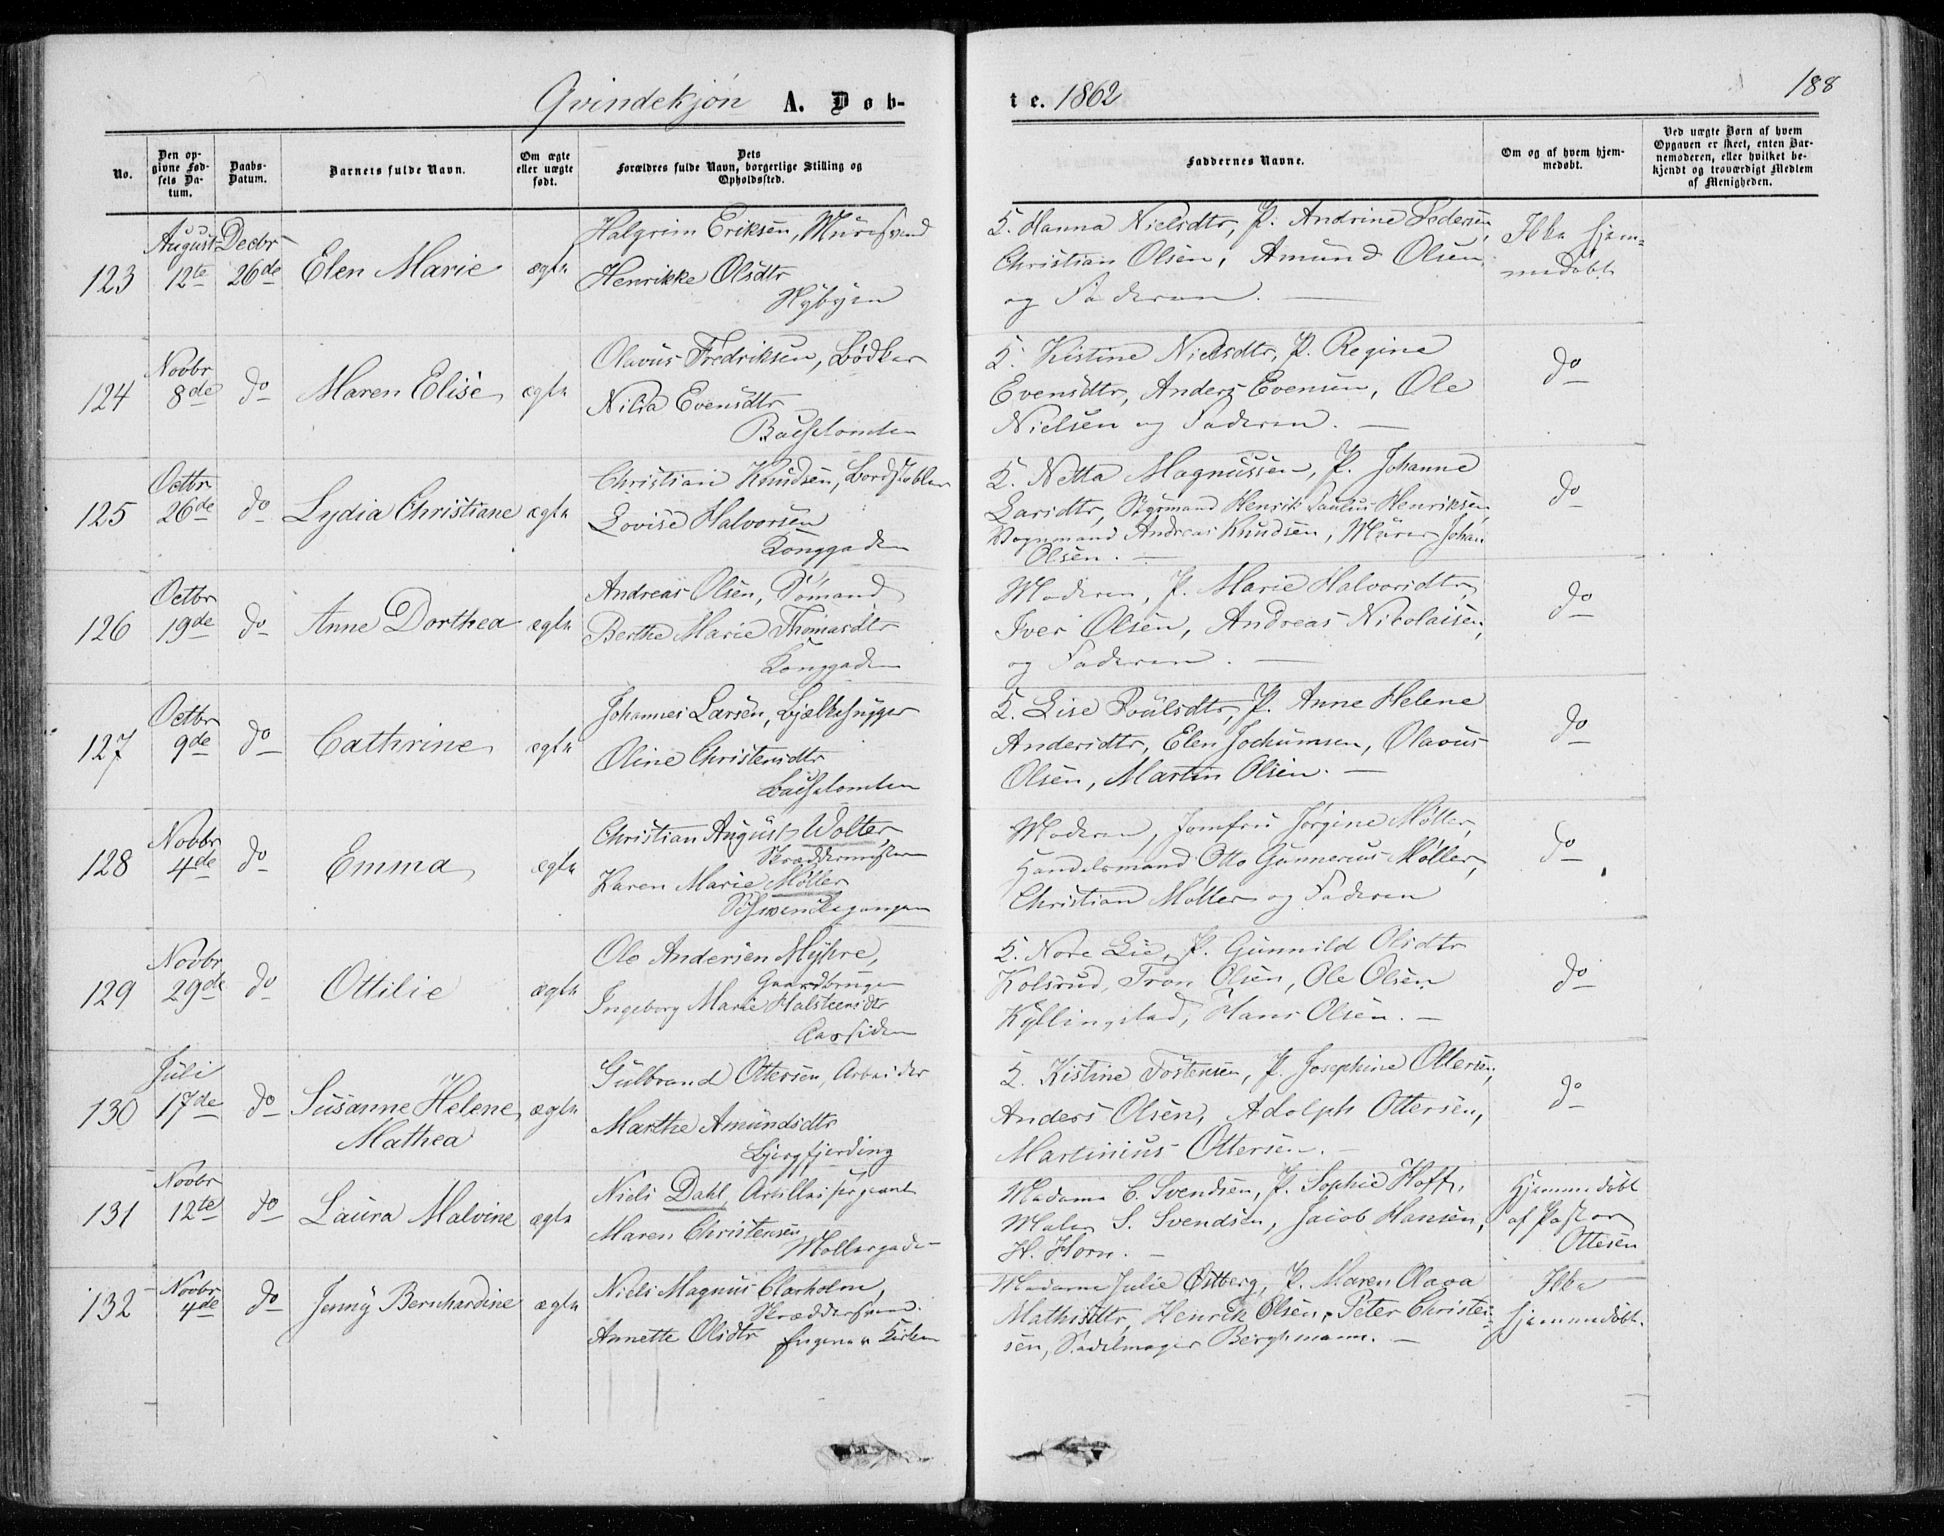 Qvindekjøn A. Døb-
te. 1862
188
No.
Den op-
givne Fød-
sels Da-
tum.
Daabs-
Datum.
Barnets fulde Navn.
Om ægte
eller uægte
født.
Dets
Forældres fulde Navn, borgerlige Stilling og
Opholdssted.
Faddernes Navne.
Om og af hvem hjem-
medøbt.
Ved uægte Børn af hvem
Opgaven er skeet, enten Bar-
nemoderen, eller hvilket be-
kjendt og troværdigt Medlem
af Menigheden.
123
August
12te
Decbr
26de
Elen Marie
ægte
Halgrim Eriksen, Muresvend
Henrikke Olsdtr
Nybyen
K. Hanna Nielsdtr, P. Andrine Pedersen,
Christian Olsen, Amund Olsen
og Faderen.
Ikke hjem-
medøbt
124
Novbr
8de
do
Maren Elise
ægte
Olavus Fredriksen, Bødker
Nilia Evensdtr
K. Kistine Nielsdtr, P. Regine
Evensdtr, Anders Evensen, Ole
Nielsen og Faderen.
do
125
Octbr
26de
do
Lydia Christiane
ægte
Christian Knudsen, Bordstabler
Lovise Halvorsen
Konggaden
K. Netta Magnussen, P. Johanne
Larsdtr, Styrmand Henrik Paulus Henriksen,
Vognmand Andreas Knudsen, Murer Johan
Olsen.
do
126
Octbr
19de
do
Anne Dorthea
ægte
Andreas Olsen, Sømand
Berthe Marie Thomasdtr
Konggaden
Moderen, P. Marie Halvorsdtr,
Iver Olsen, Andreas Nikolaisen,
og Faderen.
do
127
Octbr
9de
do
Cathrine
ægte
Johannes Larsen, Bjelkehugger
Oline Christensdtr
K. Lise Poulsdtr, P. Anne Helene
Andersdtr, Elen Jochumsen, Olavus
Olsen, Martin Olsen.
do
128
Novbr
4de
do
Emma
ægte
Christian August Wolter
Skræddermester
Karen Marie Møller
Schwenckegangen
Moderen, Jomfru Jørgine Møller,
Handelsmand Otto Gunnerius Møller,
Christian Møller og Faderen
do
129
Novbr
29de
do
Ottilie
ægte
Ole Andersen Myhre,
Gaardbruger
Ingeborg Marie Halsteensdtr
Aassiden
K. Nore Lie, P. Gunnild Olsdtr
Kolsrud, Tron Olsen, Ole Olsen
Kyllingstad, Hans Olsen.
do
130
Juli
17de
do
Susanne Helene
Mathea
ægte
Gulbrand Ottersen, Arbeider
Marthe Amundsdtr
Bjergfjerding
K. Kistine Tostensen, P. Josephine Ottersen,
Anders Olsen, Adolph Ottersen,
Martinius Ottersen.
do
131
Novbr
12te
do
Laura Malvine
ægte
Niels Dahl, Artillerisergeant
Maren Christensen
Møllergaden
Madame C. Svendsen, P. Sophie Hoff,
Maler S. Svendsen, Jacob Hansen,
H. Horn.
Hjemmedøbt
af Pastor
Ottesen
132
Novbr
4de
do
Jenny Bernhardine
ægte
Niels Magnus Clarholm,
Skræddersvend.
Annette Olsdtr Engene v Kirken
Madame Julie Østberg, P. Maren Olava
Mathisdtr, Henrik Olsen, Peter Christen-
sen, Sadelmager Berghmann.
Ikke
hjemmedøbt.